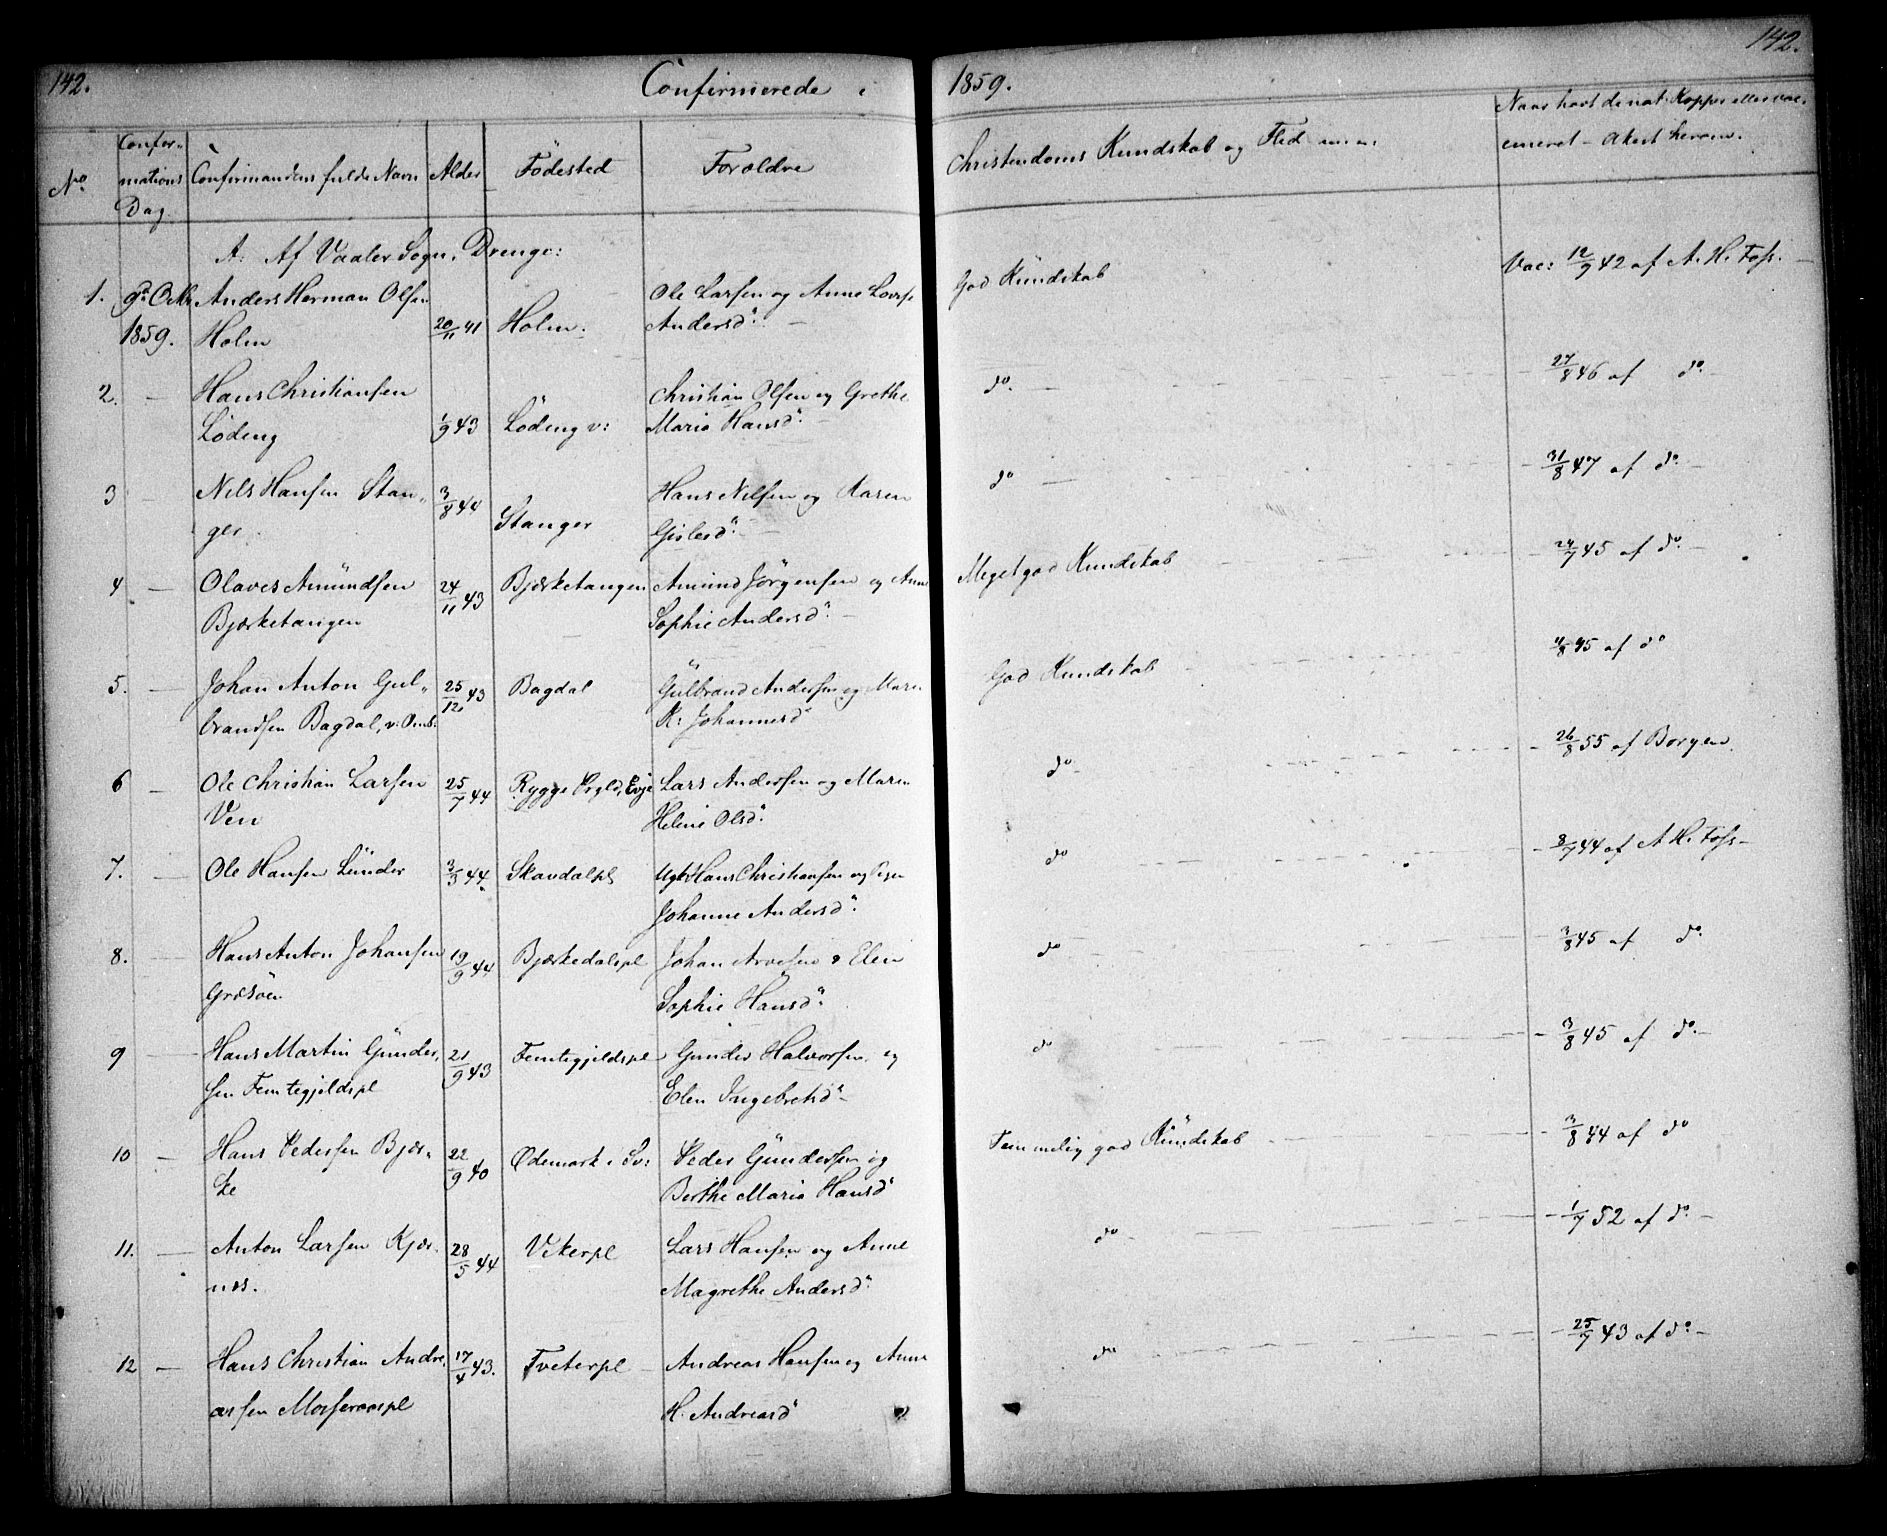 142. Confirmerede i 1859. 142.
No. Confor- mations Dag. Confirmandens fulde Navn Alder Födested Foroldre Christendoms Kundskab og Flid Naar havt de nat: Kopper eller vac-
cineret
A: Af Vaaler Sogn, Drenge:
1. 9de Octbr Anders Herman Olsen Ole Larsen og Anne Lovise God Kündskab Vac: 12/9 42 af A. H. Foss. —
1859. Holm 20/11 41 Holm. Andersd: —
2. — Hans Christiansen Christian Olsen og Grethe do. — 27/8 46 af do. —
Lödeng 1/9 43 Lödeng v: Maria Hansd: —
3 — Nils Hansen Stan- 3/8 44 Hans Nilsen og Karen do — 31/8 47 af do. —
ger Stanger Gislesd: —
4 — Olaves Amündsen 24/11 43 Bjærketangen Amund Jörgensen og Anne Meget god Kundskab 24/7 45 af do. —
Bjærketangen Sophie Andersd: —
5. — Johan Anton Gul- 25/12 43 Bagdal Gülbrand Andersen og Maren God Kundskab 4/8 45 af do
brandsen Bagdal, K: Johannesd
6 — Ole Christian Larsen 25/7 44 Rygge Evje Lars Andersen og Maren do — 26/8 55 af Borgen.
Ven Helene Olsd:
7. — Ole Hansen Lünder 3/3 44. Skavdalpl Ugk Hans Christiansen og Johanne Andersd: do 8/7 44 af A H. Foss —
8. — Hans Anton Johansen 19/9 44 Bjærkedalspl Johan Arvesen & Elen do 3/8 45 af do.
Gräsöen Sophie Hansd:
9 — Hans Martin Günder- 21/9 43 Femtegjeldspl Gunder Halvorsen og do 3/8 45 af do. —
sen Femtegjeldspl Elen Ingebretsd: —
10 — Hans Pedersen Bjær- 22/9 40 Ødemark i Sv: Peder Gündersen og Temmelig god Kündskab 3/8 44 af do
ke Berthe Maria Hansd
11. — Anton Larsen Kjær- 28/5 44 Vikerpl Lars Hansen og Anne do — 1/7 52 af do. —
nes. Magrethe Andersd:
12 — Hans Christian Andre- 17/4 43. Tveterpl — Andreas Hansen og Anne do 25/7 43 af do. —
assen Mosserospl H. Andreasd